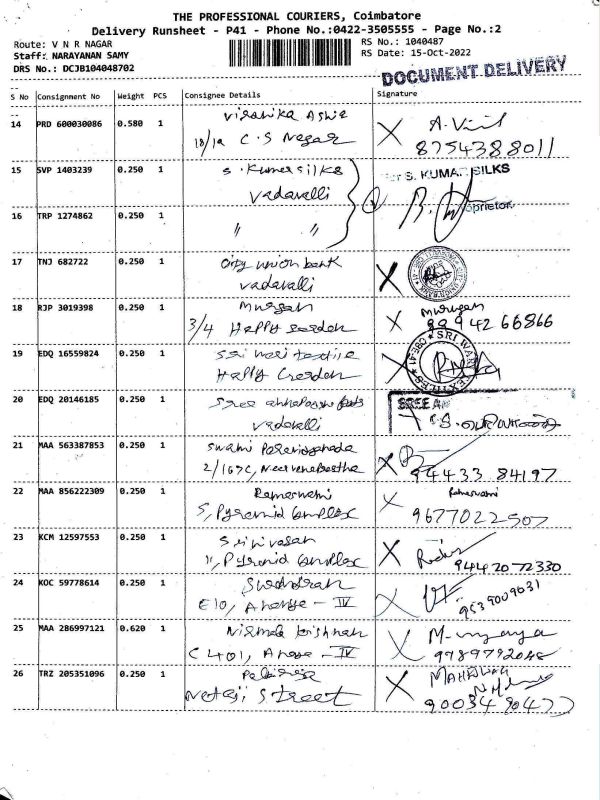 THE PROFESSIONAL COURIERS, Coimbatore
Delivery Runsheet - P41 - Phone No.:0422-3505555 - Page No.:2
Route: V N R NAGAR
RS No.: 1040487
Staff: NARAYANAN SAMY
RS Date: 15-Oct-2022
DRS No.: DCJB104048702
DOCUMENT DELIVERY
S No Consignment No Weight PCS Consignee Details Signature
14 PRD 600030086 0.580 1
18/19 C.S Nagar
8754388011
15 SVP 1403239 0.250 1 S. Kumar silks
S. KUMAR SILKS
Vadavalli
16 TRP 1274862 0.250 1 " "
17 TNJ 682722 0.250 1 City union bank
Vadavalli
18 RJP 3019398 0.250 1 Murugan Murugan
3/4 Happy Garden 99942 66866
19 EDQ 16559824 0.250 1 Sri Hari textile
Happy Garden
20 EDQ 20146185 0.250 1 Sree
SREE
Vadavalli
21 MAA 563387853 0.250 1 Swami
2/167C, 94433 84197
22 MAA 856222309 0.250 1 Ramaswami Ramaswami
5, Pyramid Complex 9677022507
23 KCM 12597553 0.250 1 Srinivasan
11, Pyramid Complex 9442072330
24 KOC 59778614 0.250 1
E10, - IV 9539009031
25 MAA 286997121 0.620 1 Nirmala krishnan
C 401, - IV 9789792048
26 TRZ 205351096 0.250 1
Netaji Street 9003490477